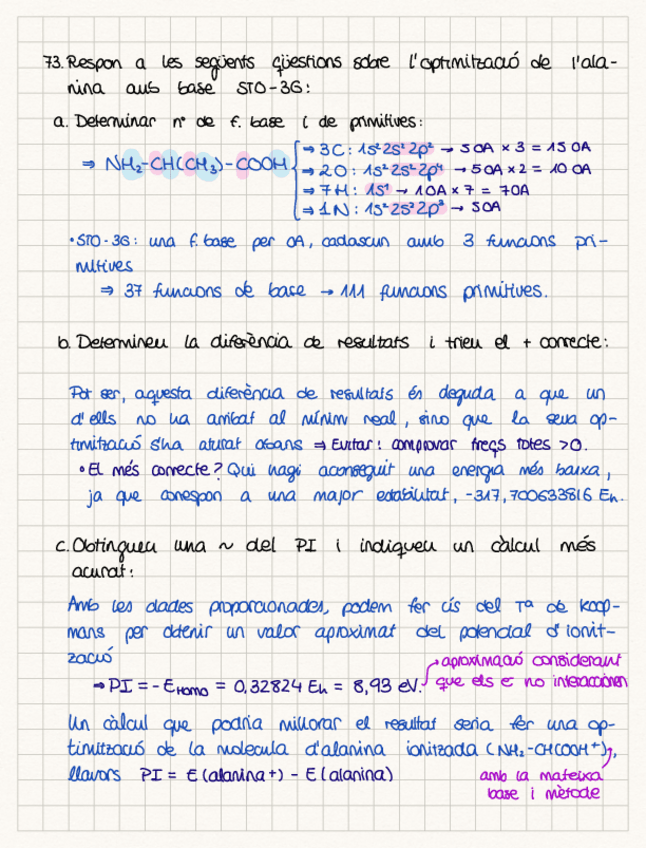 73. Respon a les següents qüestions sobre l'optimització de l'ala-
nina amb base STO-3G:
a. Determinar nº de f. base i de primitives:
⇒ NH₂-CH(CH₃)-COOH
⇒ 3C: 1s² 2s² 2p² → 5OA × 3 = 15 OA
⇒ 2O: 1s² 2s² 2p⁴ → 5OA × 2 = 10 OA
⇒ 7H: 1s¹ → 1OA × 7 = 7OA
⇒ 1N: 1s² 2s² 2p³ → 5OA
• STO-3G: una f. base per OA, cadascun amb 3 funcions pri-
mitives
⇒ 37 funcions de base → 111 funcions primitives.
b. Determineu la diferència de resultats i trieu el + correcte:
Pot ser, aquesta diferència de resultats és deguda a que un
d'ells no ha arribat al mínim real, sino que la seva op-
timització s'ha aturat abans ⇒ Evitar: comprovar freqs totes >0.
• El més correcte? Qui hagi aconseguit una energia més baixa,
ja que correspon a una major estabilitat, -317,700633816 Eh.
c. Obtingueu una ~ del PI i indiqueu un càlcul més
acurat:
Amb les dades proporcionades, podem fer ús del Tª de Koop-
mans per obtenir un valor aproximat del potencial d'ionit-
zació
⇒ PI = - EHOMO = 0,32824 Eh = 8,93 eV.
aproximació considerant
que els e⁻ no interaccionen
Un càlcul que podria millorar el resultat seria fer una op-
timització de la molècula d'alanina ionitzada (NH₂-CHCOOH⁺),
llavors PI = E(alanina+) - E(alanina)
amb la mateixa
base i mètode